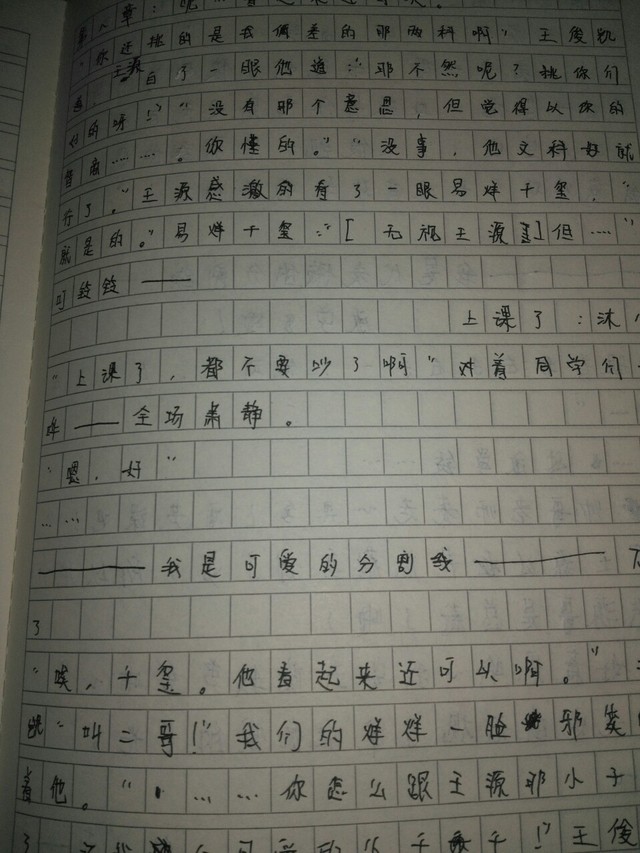 第八章:呢……看起来还可以。
“你还挑的是我俩差的那两科啊”王俊凯
道 王源白了一眼他道:“那不然呢?挑你们
好的呀!”“没有那个意思,但觉得以你的
智商……。你懂的。”“没事,他文科好就
行了。”王源感激的看了一眼易烊千玺,“
就是的。”易烊千玺:“[无视王源]但……”
叮铃铃——
上课了:沐
“上课了,都不要吵了啊”对着同学们
烊——全场肃静。
“嗯,好”
……
——我是可爱的分割线——下
了
“唉,千玺。他看起来还可以啊。”
“叫二哥!”我们的烊烊一脸邪笑
着他。“……你怎么跟王源那小子
了 千千!”王俊